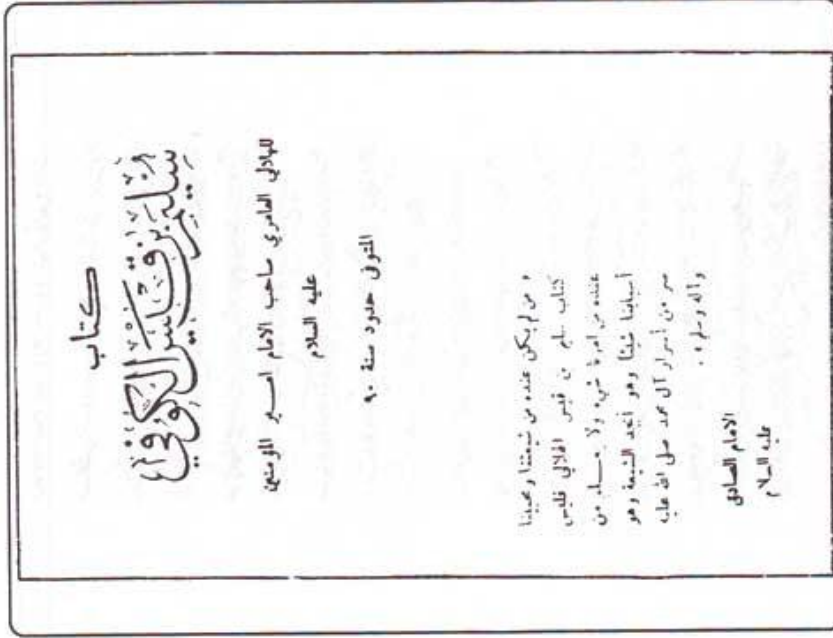 كتاب
سليم بن قيس الكوفي
الهلالي العامري صاحب الامام امير المؤمنين
عليه السلام
المتوفى حدود سنة ٩٠
« من لم يكن عنده من شيعتنا ومحبينا
كتاب سليم بن قيس الهلالي فليس
عنده من امرنا شيء ولا يعلم من
أسبابنا شيئا وهو أبجد الشيعة وهو
سر من أسرار آل محمد صلى الله عليه
وآله وسلم » .
الامام الصادق
عليه السلام